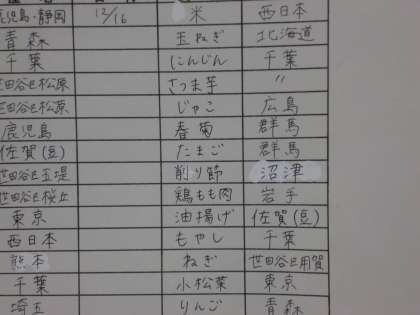 鹿児島・静岡 12/16 米 西日本
青森 玉ねぎ 北海道
千葉 にんじん 千葉
世田谷区松原 さつま芋 〃
世田谷区松原 じゃこ 広島
鹿児島 春菊 群馬
佐賀(豆) たまご 群馬
世田谷区玉堤 削り節 沼津
世田谷区桜丘 鶏もも肉 岩手
東京 油揚げ 佐賀(豆)
西日本 もやし 千葉
熊本 ねぎ 世田谷区用賀
千葉 小松菜 東京
埼玉 りんご 青森